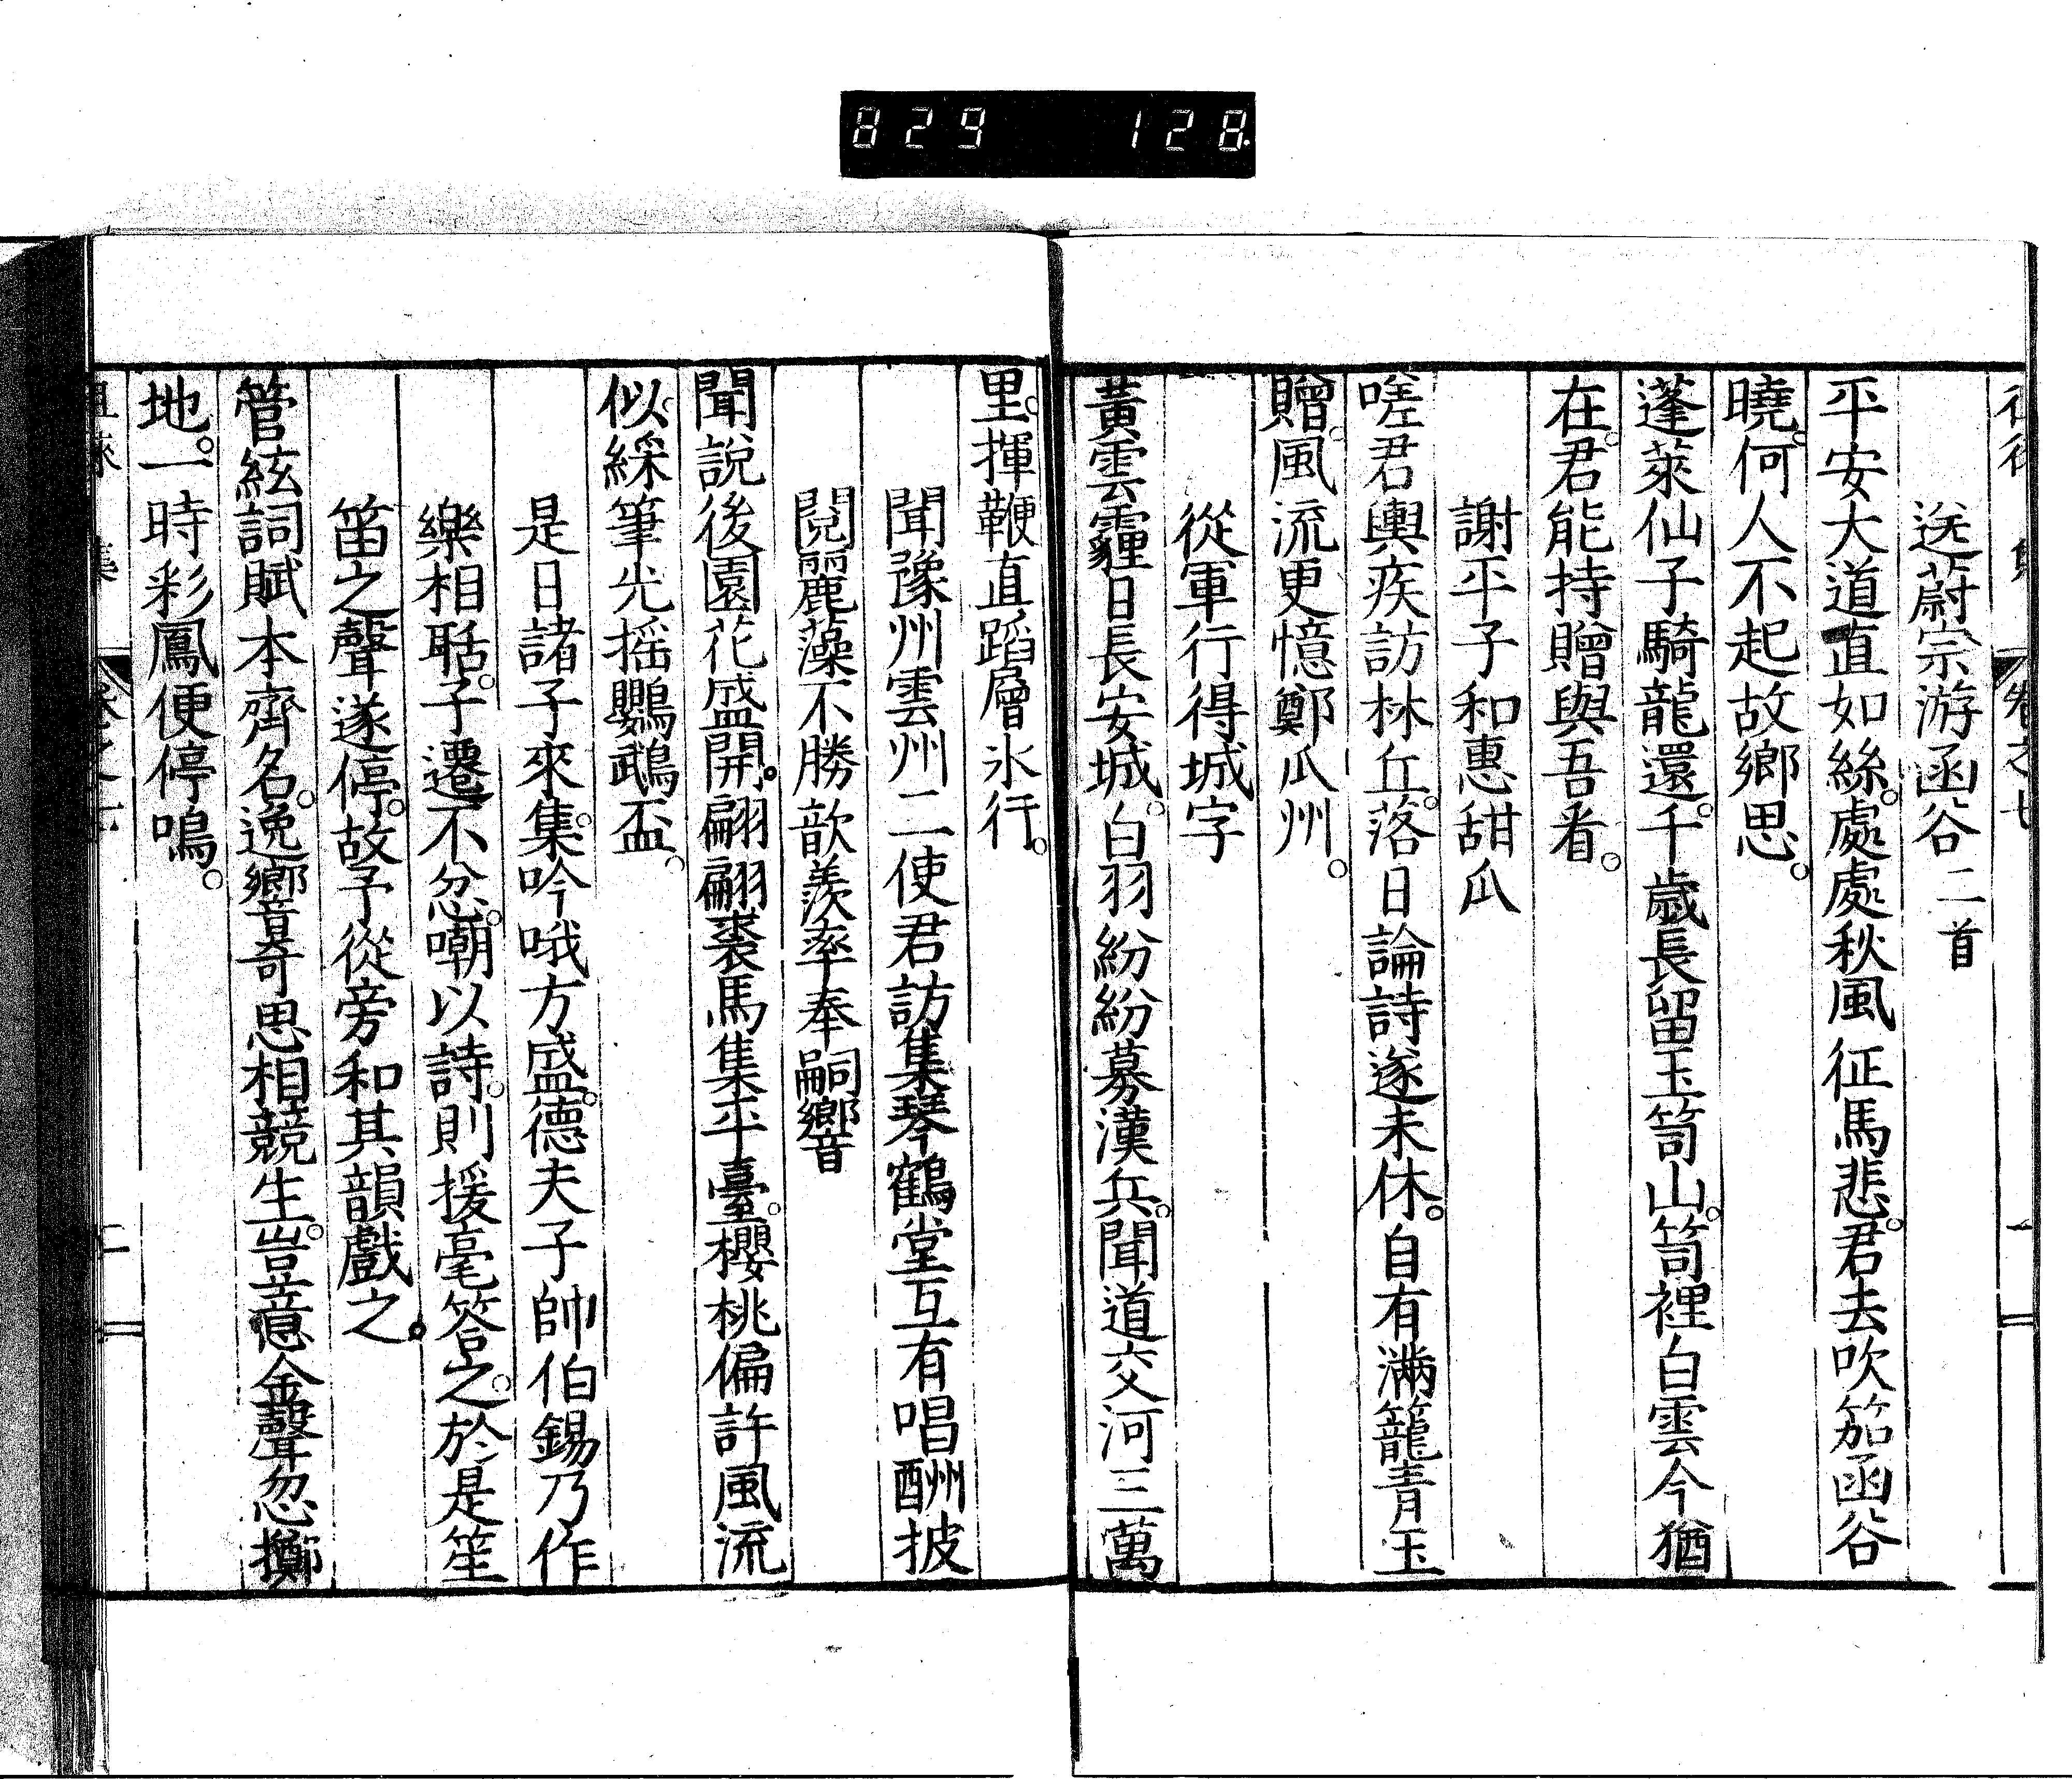 829 128.
送蔚宗游函谷二首
平安大道直如絲。處處秋風征馬悲。君去吹笳函谷
曉。何人不起故鄉思。
蓬萊仙子騎龍還。千歲長留玉笥山。笥裡白雲今猶
在。君能持贈與吾看。
謝平子和惠甜瓜
嗟君輿疾訪林丘。落日論詩遂未休。自有滿籠青玉
贈。風流更憶鄭瓜州。
從軍行得城字
黃雲霾日長安城。白羽紛紛募漢兵。聞道交河三萬
里。揮鞭直蹈層氷行。
聞豫州雲州二使君訪集琴鶴堂互有唱酬披
閱麗藻不勝歆羨率奉嗣響
聞說後園花盛開。翩翩裘馬集平臺。櫻桃偏許風流
似。綵筆光搖鸚鵡盃。
是日諸子來集。吟哦方盛。德夫子帥伯錫乃作
樂相聒。子遷不忿。嘲以詩。則援毫答之。於是笙
笛之聲遂停。故予從旁和其韻戲之。
管絃詞賦本齊名。逸響奇思相競生。豈意金聲忽擲
地。一時彩鳳便停鳴。